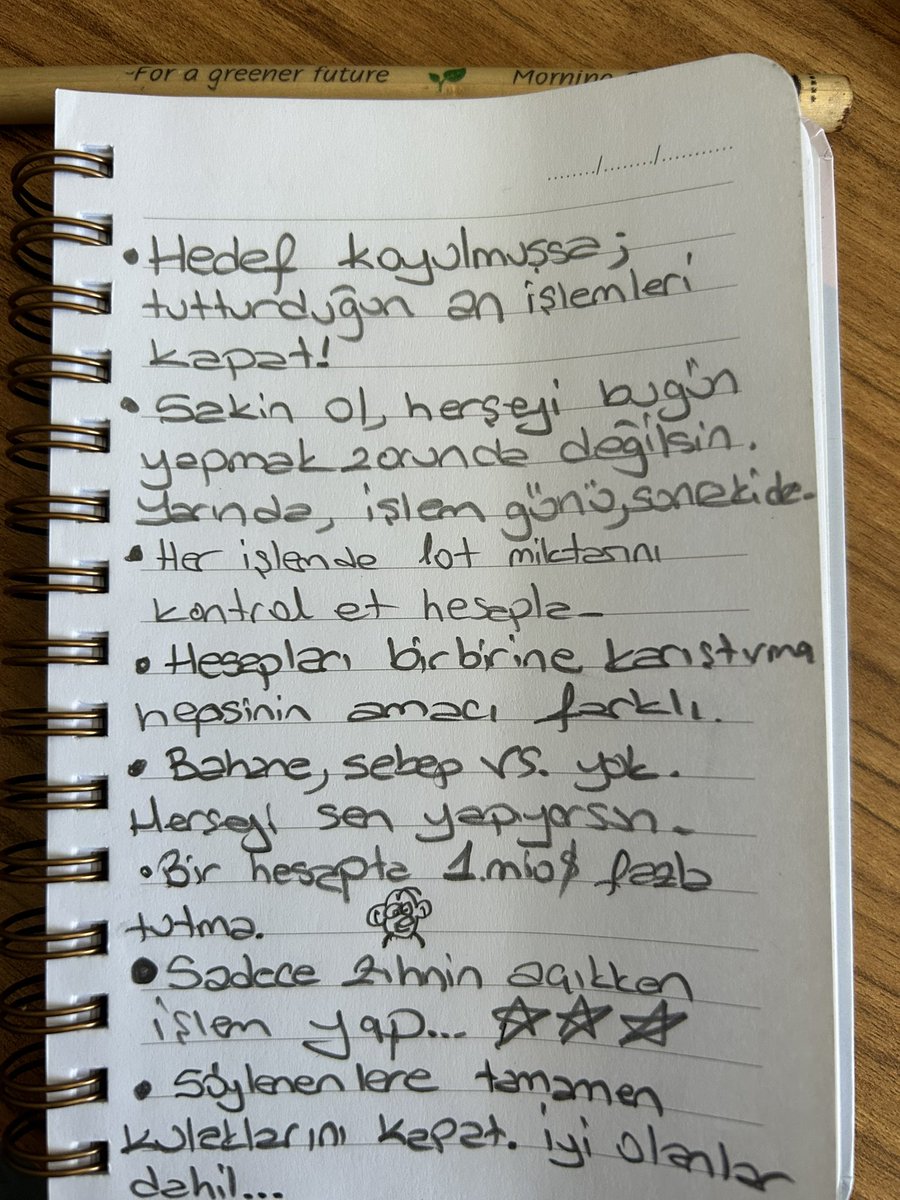 -For a greener future Morning
......../......../...........
• Hedef koyulmuşsa;
tutturduğun an işlemleri
kapat!
• Sakin ol, herşeyi bugün
yapmak zorunda değilsin.
Yarında, işlem günü, sonrakide.
• Her işlemde lot miktarını
kontrol et hesapla_
• Hesapları birbirine karıştırma
hepsinin amacı farklı.
• Bahane, sebep vs. yok.
Herşeyi sen yapıyorsun.
• Bir hesapta 1.mio$ fazla
tutma.
• Sadece zihnin açıkken
işlem yap... ☆ ☆ ☆
• Söylenenlere tamamen
kulaklarını kapat. iyi olanlar
dahil...